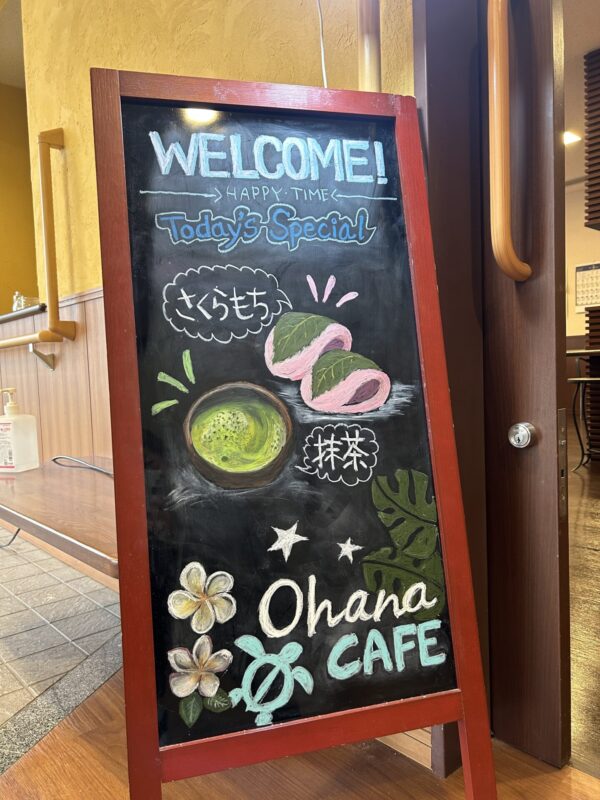 WELCOME!
HAPPY・TIME
Today's Special
さくらもち
抹茶
Ohana
CAFE